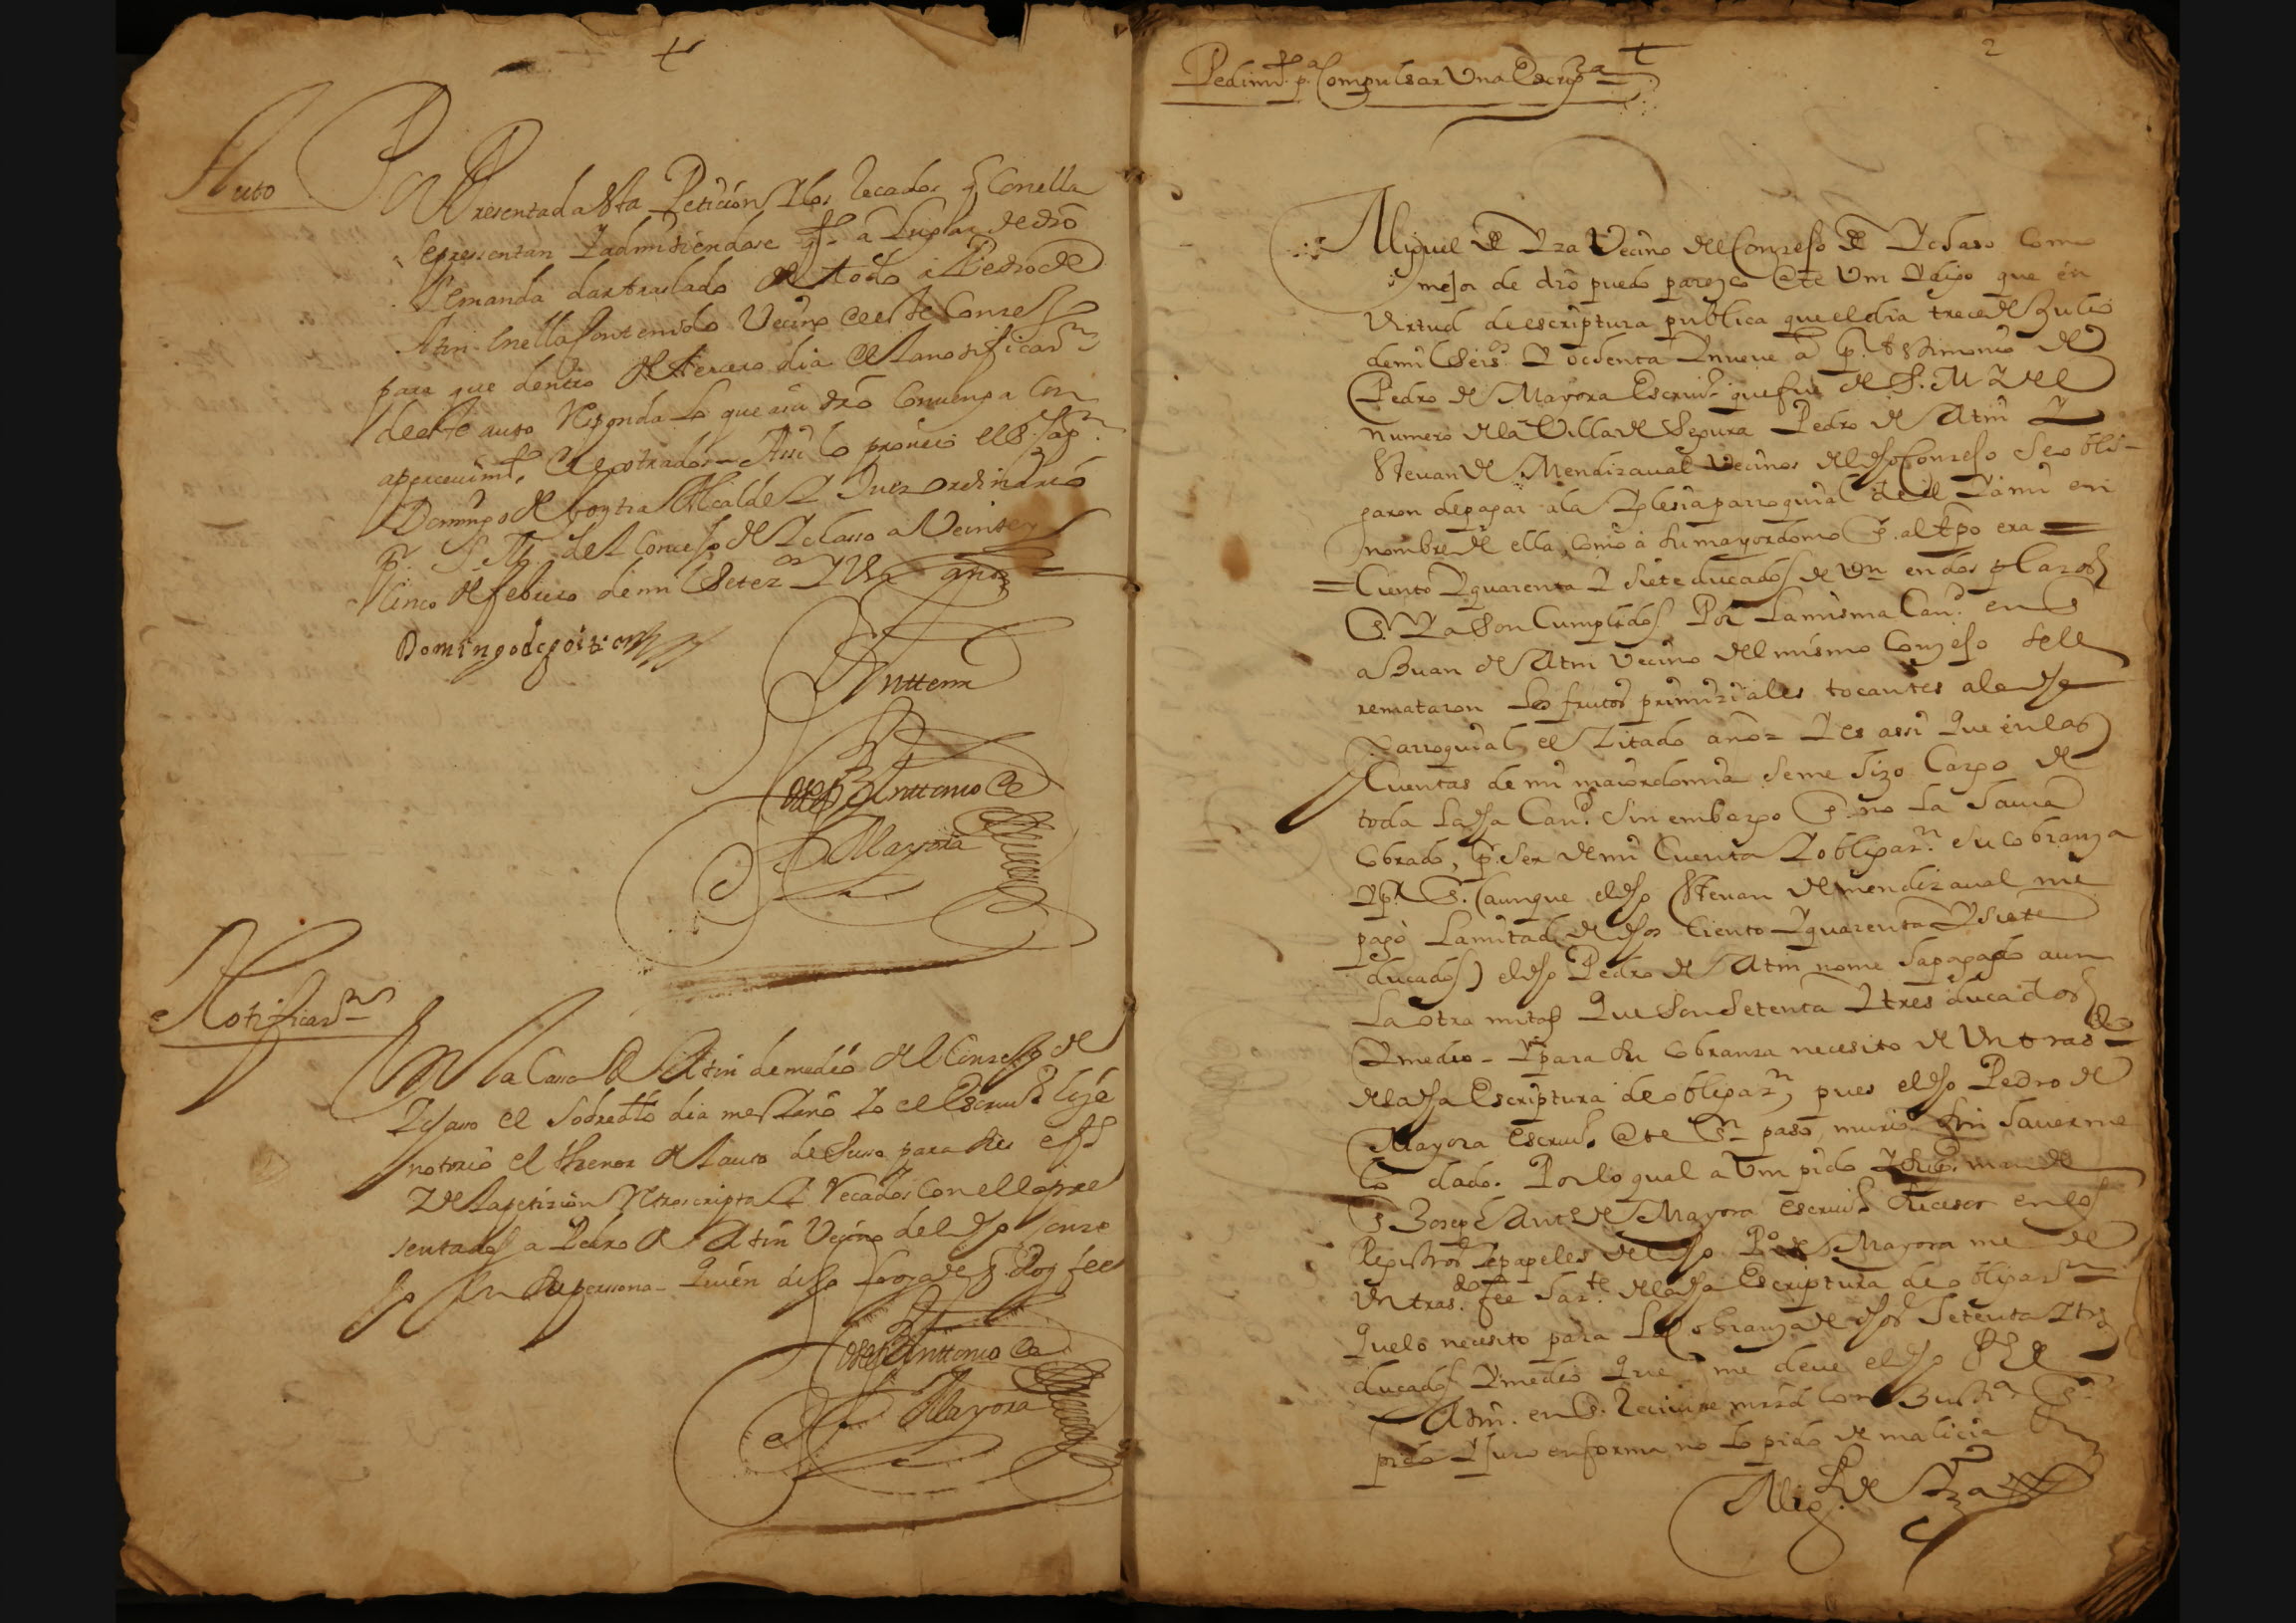 Auto
Presentada esta Petición Y los Recados q̃ Con ella
se presentan Y admitiendose qto a lugar de dro̅
Demanda dar traslado de todo a Pedro de
Atin en ella Contenido Vecino de este Conzejo
para que dentro de tercero dia de la notificazn
de este auto Responda Lo que a su dro̅ Convenga Con
apercevimto de estrados Assi lo proueio el S. Cappn
Domingo de Goytia Alcalde Y Juez ordinario
pr S. Mg. del Conzejo de Ydiazo a Veinte y
Cinco de febrero de mil Setezos Y Un años =
Domingo de goitia
Antte mi
Joseph Anttonio de
Mayora
Notificazn
En la Casa de Atin de medio del Conzejo de
Ydiazo el sobredho dia mes Y año Yo el Escriuo leí e
notorié el thenor del auto de Suso para su efto
Y de la petizion Retroscripta Y Recados Con ella pre
sentados a Pedro de Atin Vecino del dho Conze
jo En su persona Quien dijo Lo oya de q. Doy fee
Joseph Anttonio de
Mayora
Pedimto pa Compulsar Una Escripra
2
Miguel de Yza Vecino del Conzejo de Ydiazo Como
mejor de dro puedo parezco ante Vm Y digo que en
Virtud de escriptura publica que el dia trece de Julio
de mil Seiss Y ochenta Y nueue a pr testimonio de
Pedro de Mayora Escriuo que fue de S. M. Y del
numero de la Villa de Segura Pedro de Atin Y
Esteuan de Mendizaual Vecinos del dho Conzejo se obli-
garon de pagar a la Yglesia parroquial de el Y a mi en
nombre de ella, como a su mayordomo q. al tpo era =
= Ciento Y quarenta Y siete ducados de Vn en dos plazos
q. Ya son Cumplidos Por La misma Cand en q
a Juan de Atin Vecino del mismo Conzejo se le
remataron Los frutos primiziales tocantes a la dha
Parroquial, el Zitado año = Y es assi Que en las
Cuentas de mi maiordomia se me hizo Cargo de
toda La dha Cand Sin embargo q. no La hauia
Cobrado, pr Ser de mi Cuenta Y obligazn su cobranza
Y pr q. (aunque el dho Esteuan de mendizaual me
pagó La mitad de dhos Ciento Y quarenta Y siete
ducados) el dho Pedro de Atin no me ha pagado aun
La otra mitad Que Son Setenta Y tres ducados
Y medio - Y para su cobranza necesito de Un trasdo
de la dha Escriptura de obligazn, pues el dho Pedro de
Mayora Escriuo ante qn pasó, murió sin hauerme
lo dado. Por lo qual a Vm pido Y supco mande
q Joseph Anto de Mayora escriuo sucesor en los
Registros Y papeles del dho Po de Mayora me de
Un trasdo fee hazte de la dha Escriptura de obligazn
Que lo necesito para La cobranza de dhos Setenta Y tres
ducados Y medio Que me deue el dho Po de
Atin. en q. Reciuire mrzd con Justa q.
pido Y juro en forma no Lo pido de malicia
Migl de Yza